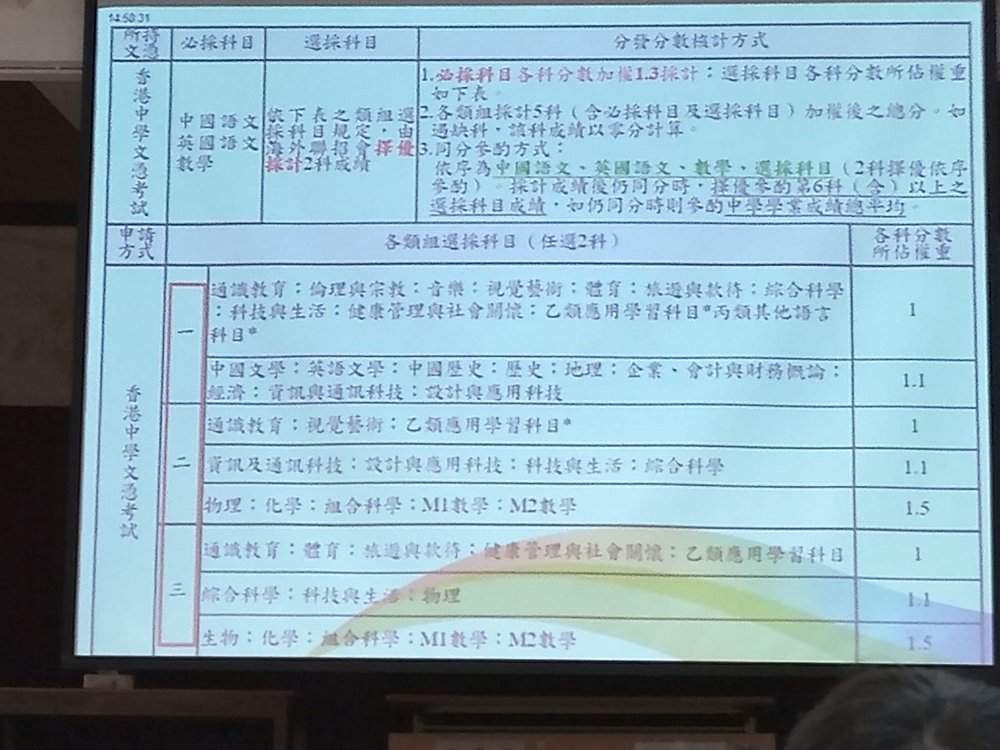 14:50:31
所持
文憑
必採科目
選採科目
分發分數核計方式
香港中學文憑考試
中國語文
英國語文
數學
依下表之類組選
採科目規定，由
海外聯招會擇優
採計2科成績
1.必採科目各科分數加權1.3採計；選採科目各科分數所佔權重
如下表。
2.各類組採計5科（含必採科目及選採科目）加權後之總分。如
遇缺科，該科成績以零分計算。
3.同分參酌方式：
依序為中國語文、英國語文、數學、選採科目（2科擇優依序
參酌）。採計成績後仍同分時，擇優參酌第6科（含）以上之
選採科目成績，如仍同分時則參酌中學學業成績總平均。
申請
方式
各類組選採科目（任選2科）
各科分數
所佔權重
香港中學文憑考試
一
通識教育；倫理與宗教；音樂；視覺藝術；體育；旅遊與款待；綜合科學
；科技與生活；健康管理與社會關懷；乙類應用學習科目*丙類其他語言
科目*
1
中國文學；英語文學；中國歷史；歷史；地理；企業、會計與財務概論；
經濟；資訊與通訊科技；設計與應用科技
1.1
二
通識教育；視覺藝術；乙類應用學習科目*
1
資訊及通訊科技；設計與應用科技；科技與生活；綜合科學
1.1
物理；化學；組合科學；M1數學；M2數學
1.5
三
通識教育；體育；旅遊與款待；健康管理與社會關懷；乙類應用學習科目
1
綜合科學；科技與生活；物理
1.1
生物；化學；組合科學；M1數學；M2數學
1.5